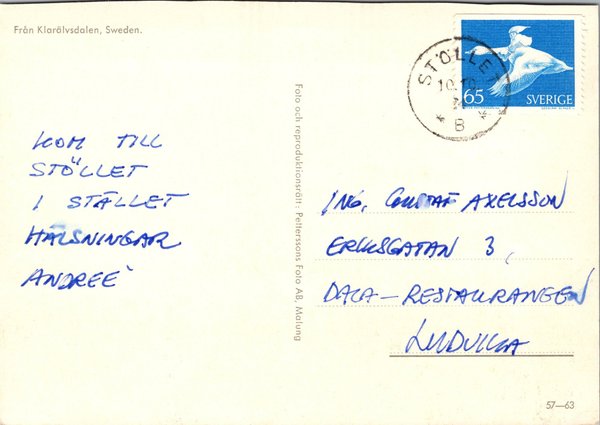 Från Klarälvsdalen, Sweden.
KOM TILL
STÖLLET
I STÄLLET
HÄLSNINGAR
ANDREÉ
Foto och reproduktionsrätt: Petterssons Foto AB, Malung
STÖLLET
B
65
SVERIGE
ING. GUSTAF AXELSSON
ERIKSGATAN 3,
DALA-RESTAURANGEN
LUDVIKA
57—63